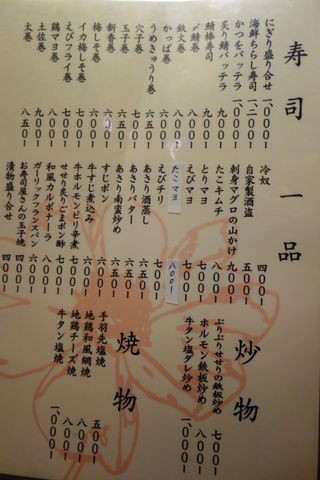 寿司
にぎり盛り合せ 一、〇〇〇ー
海鮮ちらし寿司 一、二〇〇ー
かつをバッテラ 一、〇〇〇ー
炙り鯖バッテラ 九〇〇ー
鯖棒寿司 九〇〇ー
〆鯖巻 七〇〇ー
鉄火巻 八〇〇ー
かっぱ巻 六〇〇ー
うめきゅうり巻 六五〇ー
穴子巻 七〇〇ー
玉子巻 六五〇ー
新香巻 六〇〇ー
梅しそ巻 六〇〇ー
イカ梅しそ巻 七〇〇ー
えびフライ巻 七〇〇ー
鶏マヨ巻 八〇〇ー
土佐巻 九〇〇ー
太巻 八五〇ー
一品
冷奴 四〇〇ー
自家製酒盗 五〇〇ー
刺身マグロの山かけ 九〇〇ー
たこキムチ 八〇〇ー
とりマヨ 七〇〇ー
えびマヨ 七〇〇ー
たこマヨ 八〇〇ー
えびチリ 七〇〇ー
あさり酒蒸し 六五〇ー
あさりバター 六五〇ー
あさり南蛮炒め 六五〇ー
すじポン 六〇〇ー
牛すじ煮込み 六〇〇ー
牛ホルモンピリ辛煮 七〇〇ー
せせり炙りごまポン酢 七〇〇ー
和風カルボナーラ 八〇〇ー
ガーリックフランスパン 四〇〇ー
お寿司屋さんの玉子焼 四〇〇ー
漬物盛り合せ 四〇〇ー
炒物
ぷりぷりせせりの鉄板炒め 七〇〇ー
ホルモン鉄板炒め 八〇〇ー
牛タン塩ダレ炒め 一、〇〇〇ー
焼物
手羽先塩焼 五〇〇ー
地鶏和風網焼 八〇〇ー
地鶏チーズ焼 八〇〇ー
牛タン塩焼 一、〇〇〇ー